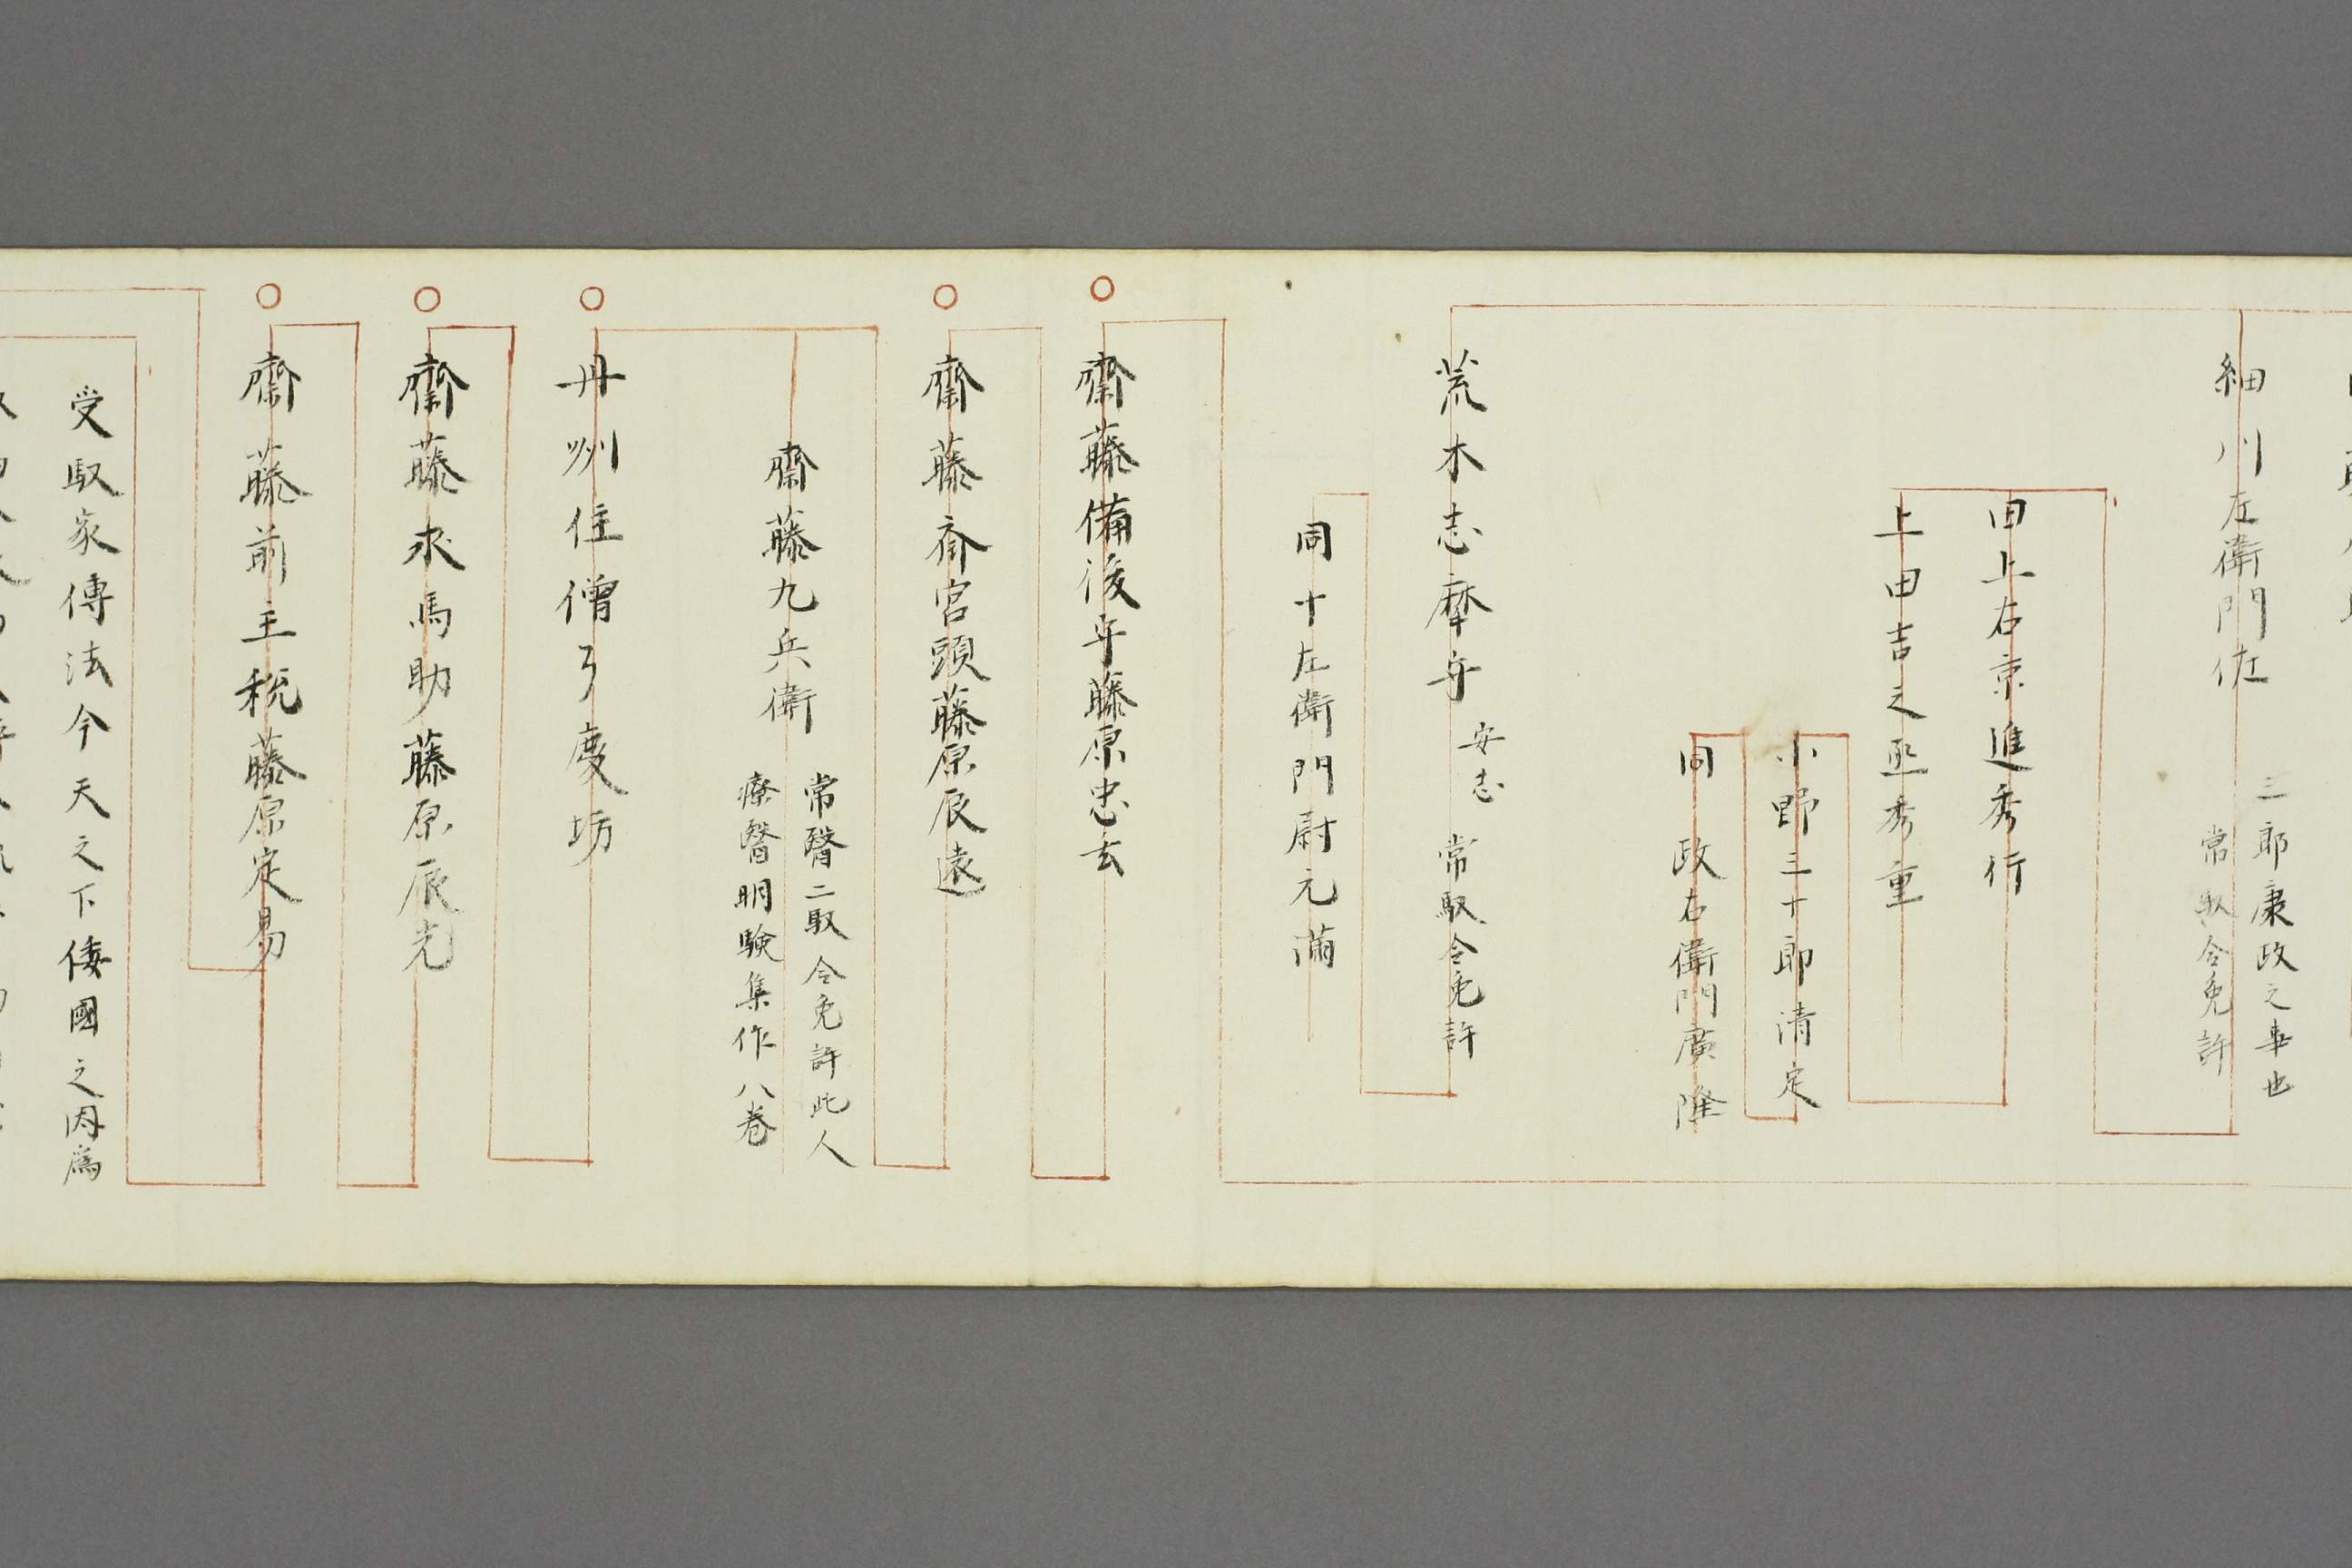 細川左衛門佐
三郎康政之事也
常馭令免許
田上右京進秀行
上田吉之丞秀重
小野三十郎清定
同 政右衛門廣隆
荒木志摩守
安志
常馭令免許
同十左衛門尉元滿
齋藤備後守藤原忠玄
齋藤斎宮頭藤原辰遠
齋藤九兵衛
常醫二馭令免許此人
療醫明験集作八巻
丹州住僧了慶坊
齋藤求馬助藤原辰光
齋藤前主税藤原定易
受馭家傳法令天之下倭國之因爲